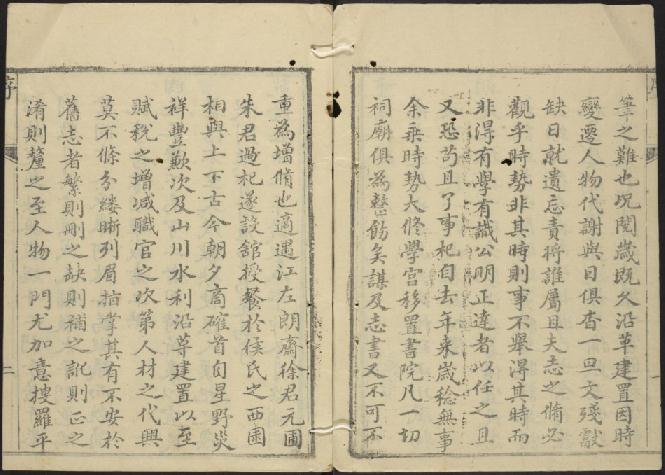 筆之難也况閱歲既久沿革建置因時
變遷人物代謝與日俱杳一旦文殘獻
缺日就遺忘責將誰屬且夫志之脩必
觀乎時勢非其時則事不舉得其時而
非得有學有識公明正達者以任之且
又恐苟且了事杞自去年来歲稔無事
余乗時勢大修學宫移置書院凡一切
祠廟俱為整飭矣謀及志書又不可不
重為增脩也適遇江左朗齋徐君元圃
朱君過杞遂設舘授餐於侯民之西園
相與上下古今朝夕商確首自星野災
祥豐歉次及山川水利沿革建置以至
賦稅之增減職官之次第人材之代興
莫不條分縷晰列眉指掌其有不安於
舊志者繁則刪之缺則補之訛則正之
淆則釐之至人物一門尤加意搜羅平
序
二